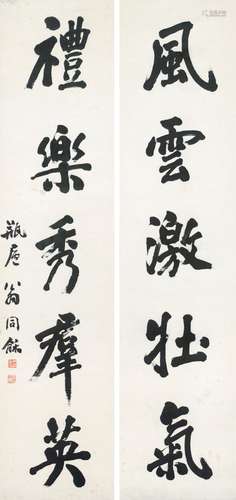 風雲激壯氣
禮樂秀群英
瓶廬翁同龢